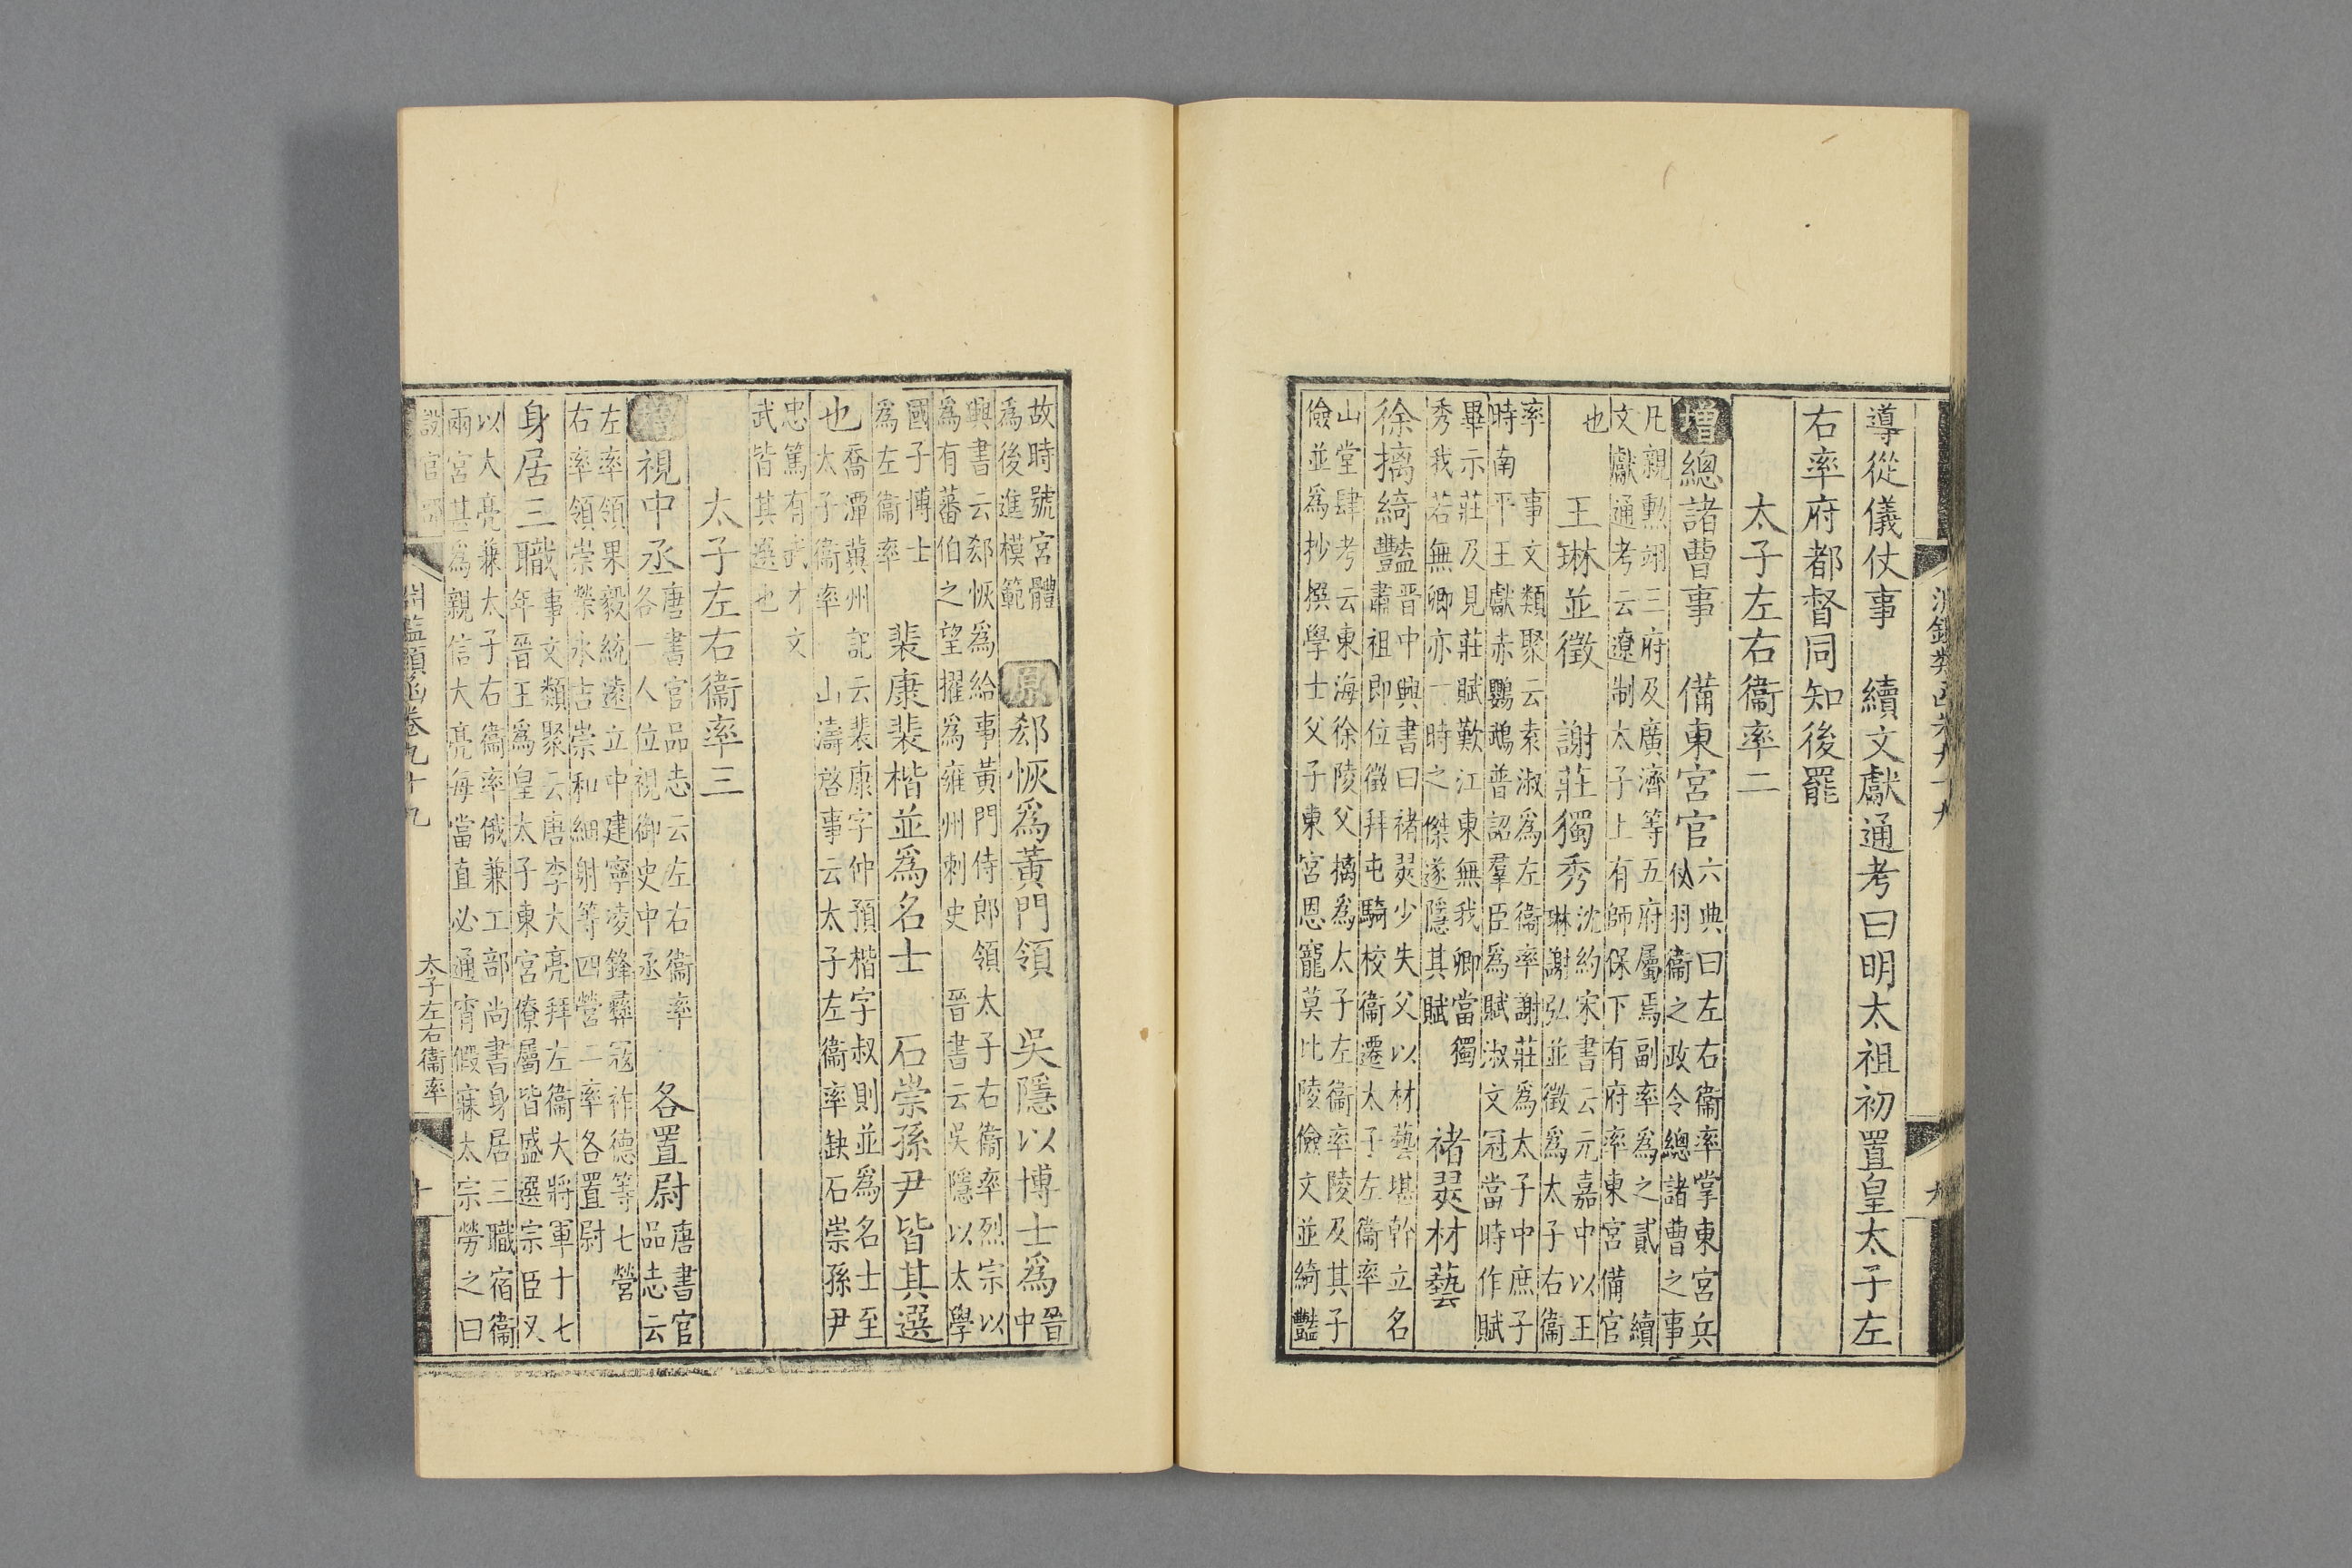 淵鑑類函卷九十九 九
導從儀仗事 續文獻通考曰明太祖初置皇太子左
右率府都督同知後罷
太子左右衞率二
增總諸曹事 備東宮官 六典曰左右衞率掌東宮兵
仗羽衞之政令總諸曹之事
凡親勲翊三府及廣濟等五府屬焉副率爲之貳 續
文獻通考云遼制太子上有師保下有府率東宮備官
也 王琳並徵 謝莊獨秀 沈約宋書云元嘉中以王
琳謝弘並徵爲太子右衞
率 事文類聚云袁淑爲左衞率謝莊爲太子中庶子
時南平王獻赤鸚鵡普詔羣臣爲賦淑文冠當時作賦
畢示莊及見莊賦歎江東無我卿當獨
秀我若無卿亦一時之傑遂隱其賦 褚翜材藝
徐摛綺豔 晉中興書曰褚翜少失父以材藝堪幹立名
肅祖即位徵拜屯騎校衞遷太子左衞率
山堂肆考云東海徐陵父摛爲太子左衞率陵及其子
儉並爲抄撰學士父子東宮恩寵莫比陵儉文並綺豔
故時號宮體
爲後進模範 原郄恢爲黃門領 吳隱以博士爲 晉
中
興書云郄恢爲給事黃門侍郎領太子右衞率烈宗以
爲有蕃伯之望擢爲雍州刺史 晉書云吳隱以太學
國子博士
爲左衞率 裴康裴楷並爲名士 石崇孫尹皆其選
也 喬潭冀州記云裴康字仲預楷字叔則並爲名士至
太子衞率 山濤啓事云太子左衞率缺石崇孫尹
忠篤有武才文
武皆其選也
太子左右衞率三
增視中丞 唐書官品志云左右衞率
各一人位視御史中丞 各置尉 唐書官
品志云
左率領果毅統遠立中建寧凌鋒彝寇祚德等七營
右率領崇榮永吉崇和細射等四營二率各置尉
身居三職 事文類聚云唐李大亮拜左衞大將軍十七
年晉王爲皇太子東宮僚屬皆盛選宗臣又
以大亮兼太子右衞率俄兼工部尚書身居三職宿衞
兩宮甚爲親信大亮每當直必通宵假寐太宗勞之曰
淵鑑類函卷九十九 太子左右衞率 十